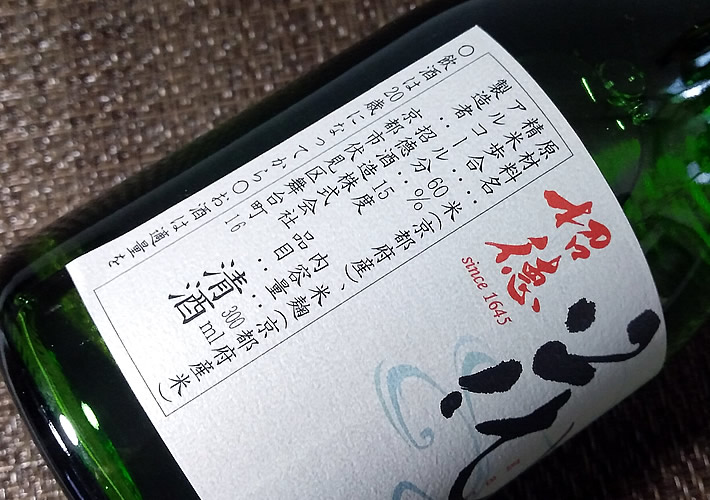 招徳
since 1645
原材料名:米(京都府産)、米麹(京都府産米)
精米歩合:60%
アルコール分:15度 内容量:300ml
製造者:招徳酒造株式会社 品目:清酒
京都市伏見区舞台町16
○飲酒は20歳になってから○お酒は適量を